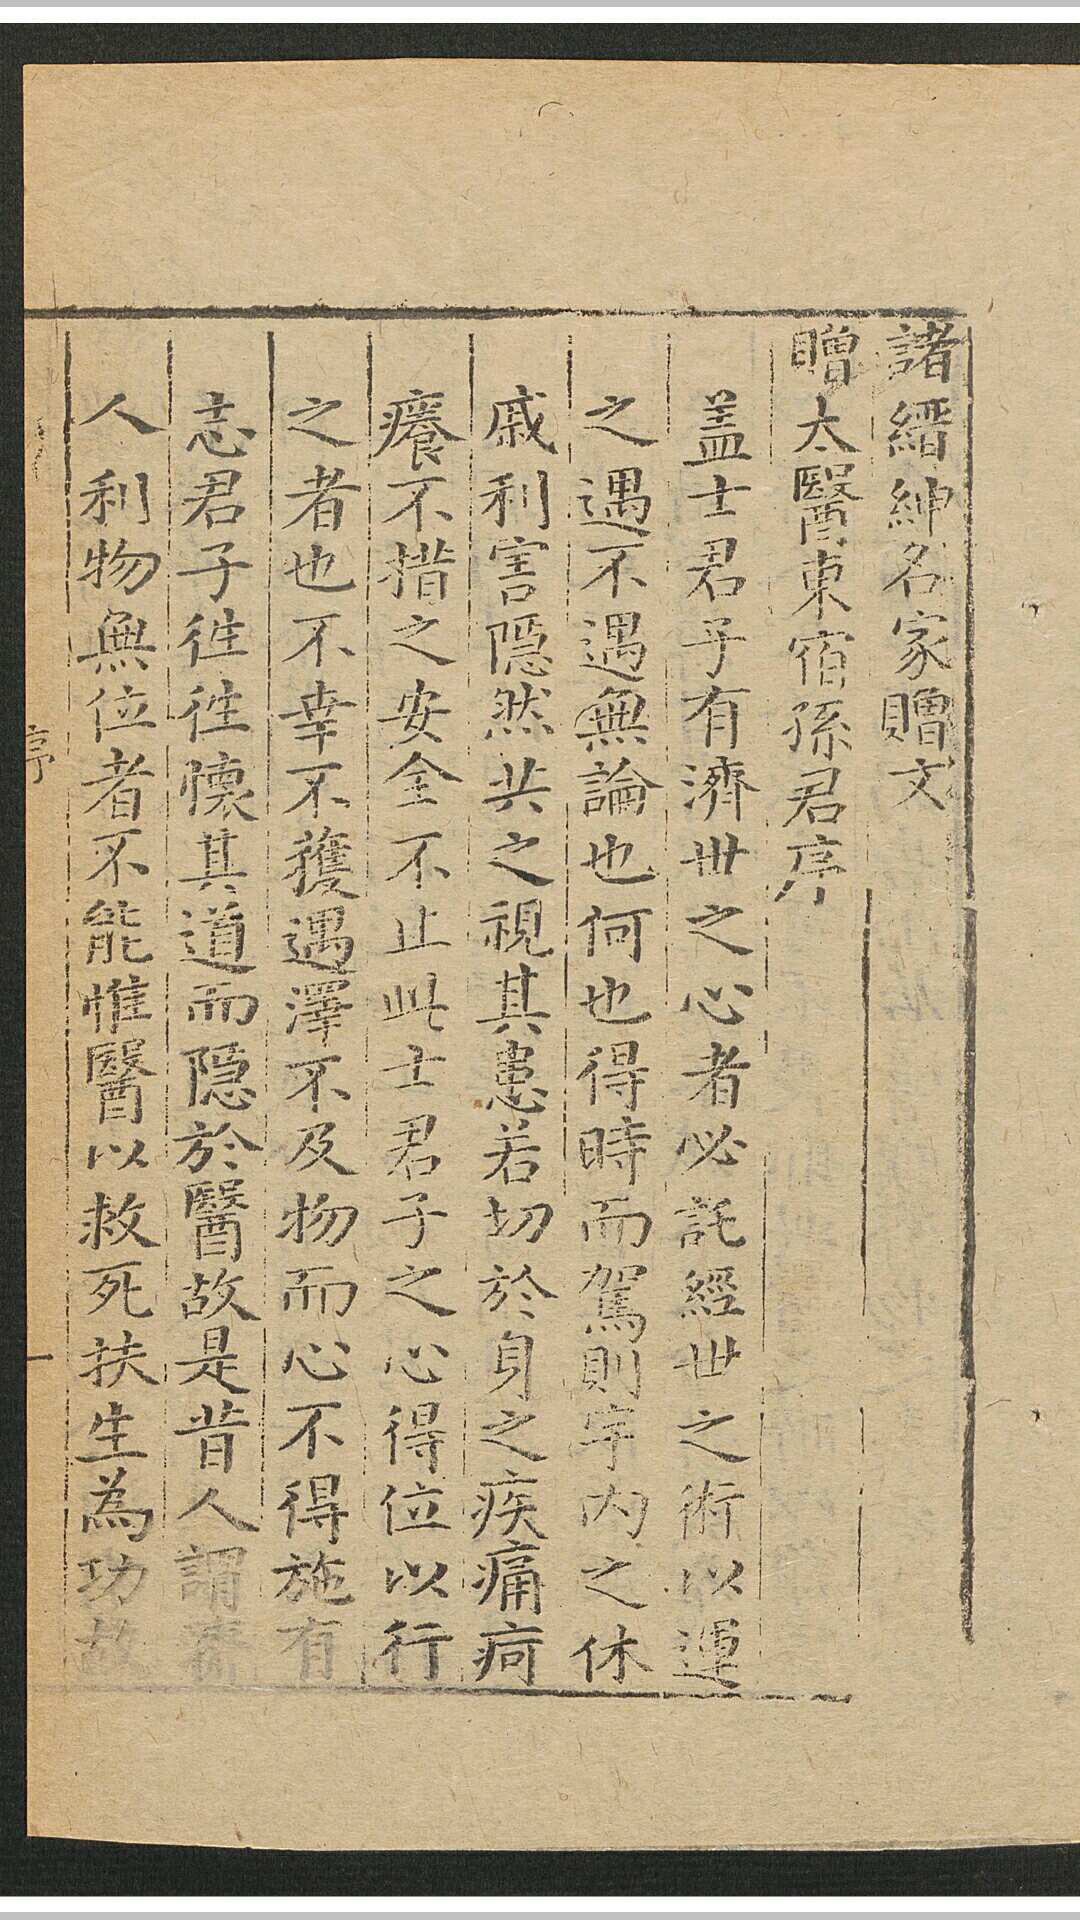 諸縉紳名家贈文
贈太醫東宿孫君序
盖士君子有濟世之心者必託經世之術以運
之遇不遇無論也何也得時而駕則宇內之休
戚利害隠然共之視其患若切於身之疾痛疴
癢不措之安全不止此士君子之心得位以行
之者也不幸不獲遇澤不及物而心不得施有
志君子徃徃懐其道而隠於醫故是昔人謂濟
人利物無位者不能惟醫以救死扶生為功故
序
一